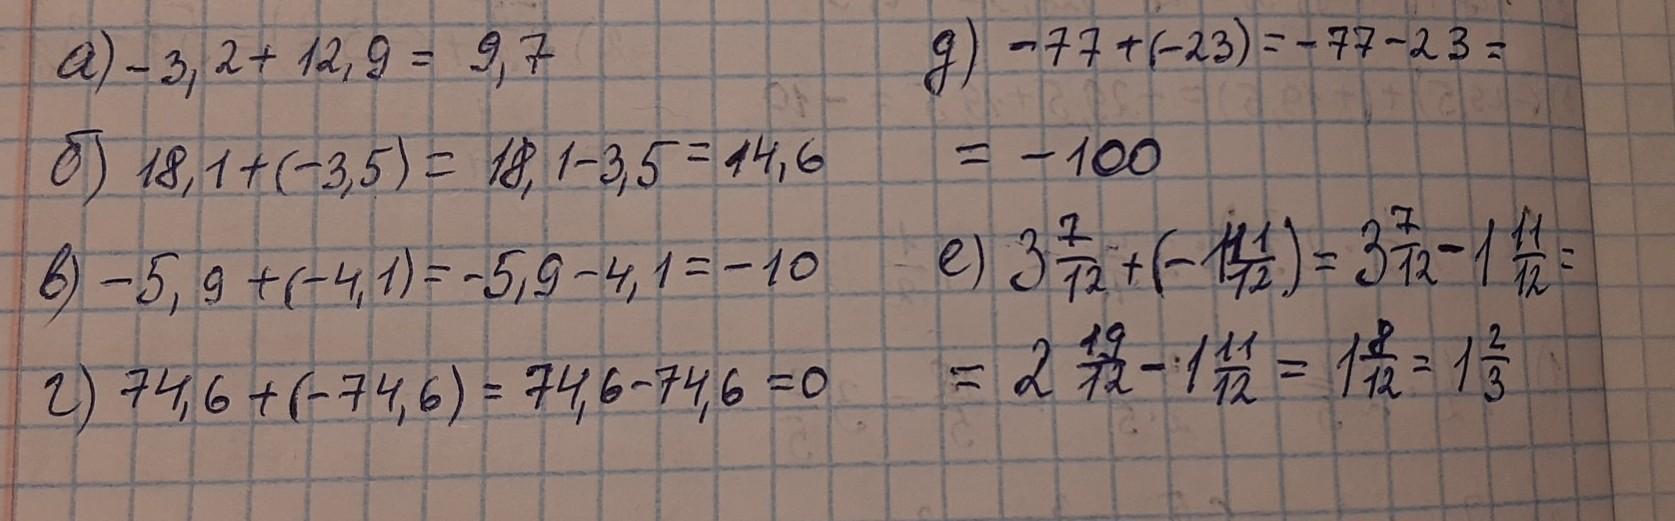 а) -3,2 + 12,9 = 9,7
б) 18,1 + (-3,5) = 18,1 - 3,5 = 14,6
в) -5,9 + (-4,1) = -5,9 - 4,1 = -10
г) 74,6 + (-74,6) = 74,6 - 74,6 = 0
д) -77 + (-23) = -77 - 23 =
= -100
е) 3 7/12 + (-1 11/12) = 3 7/12 - 1 11/12 =
= 2 19/12 - 1 11/12 = 1 8/12 = 1 2/3